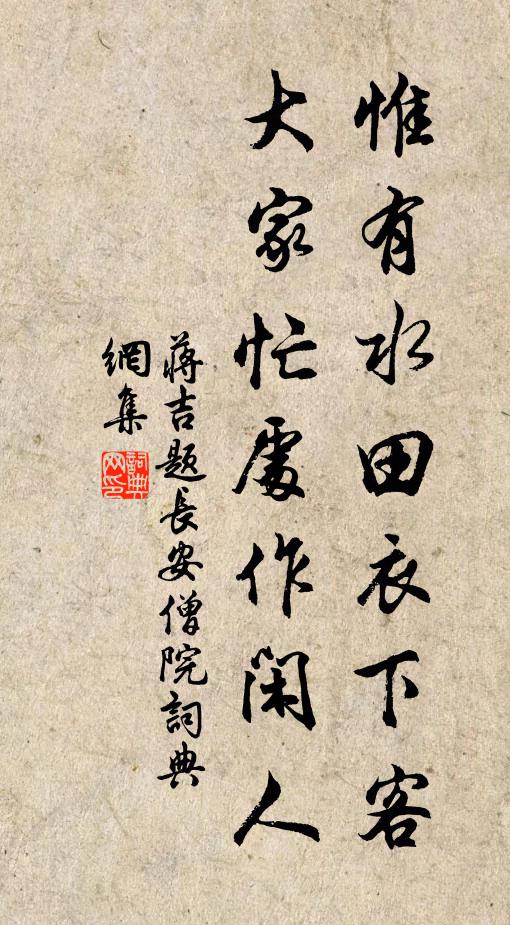 惟有水田衣下客
大家忙處作閑人
蔣吉題長安僧院詞典
網集
詞典
网印